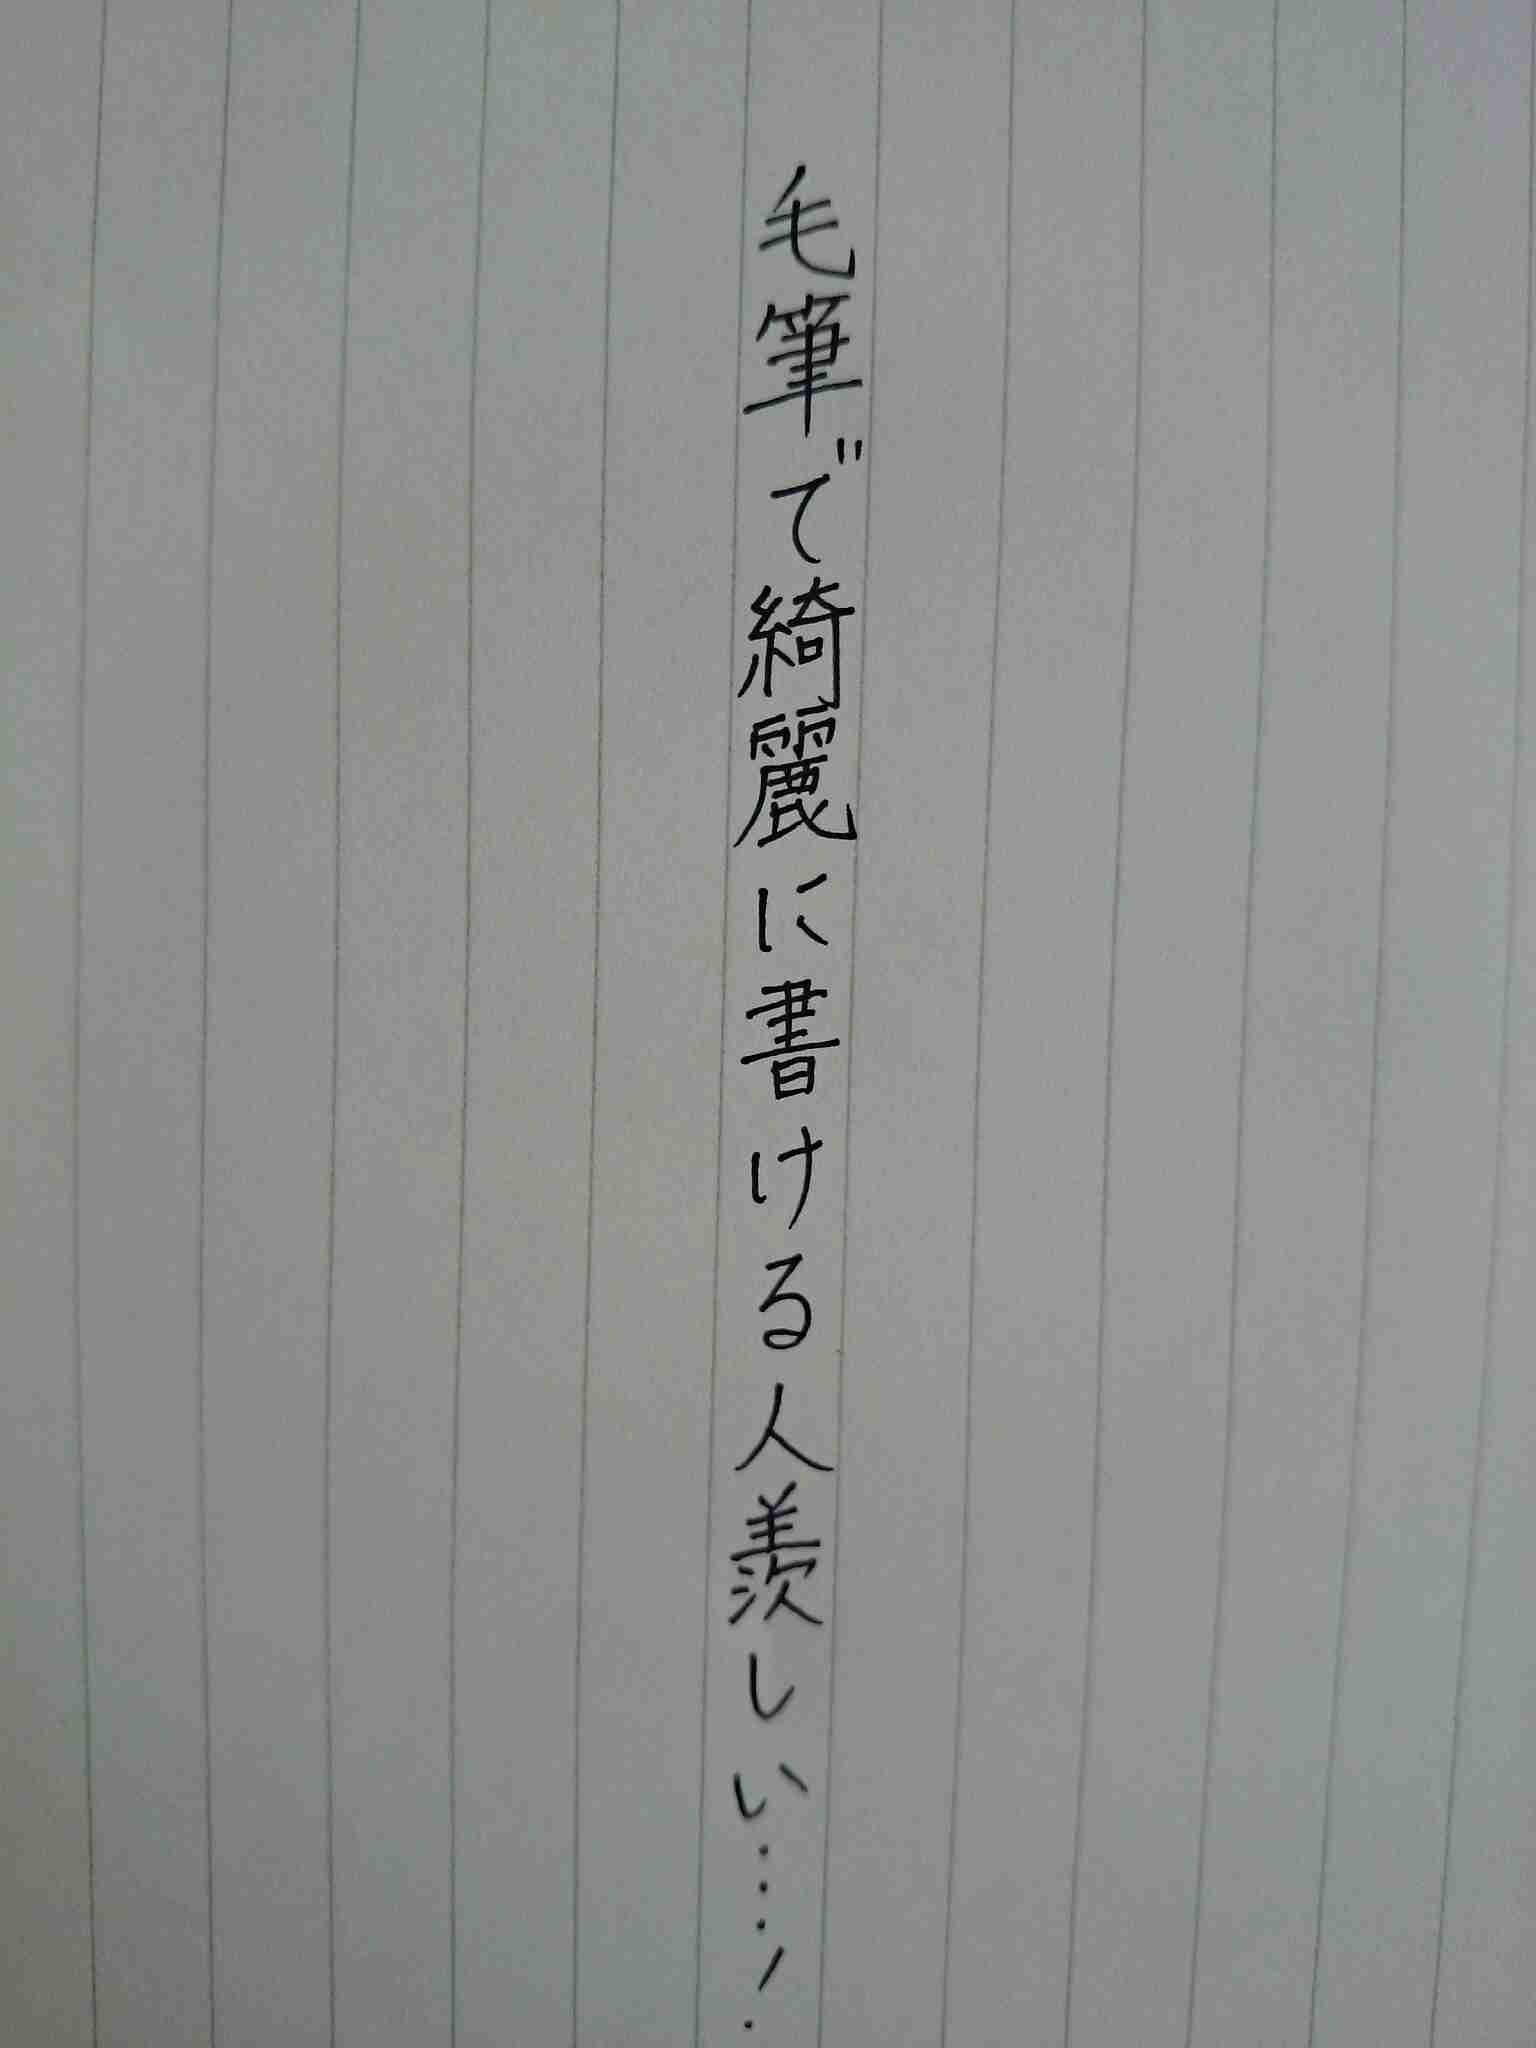 毛筆で綺麗に書ける人羨しい…!